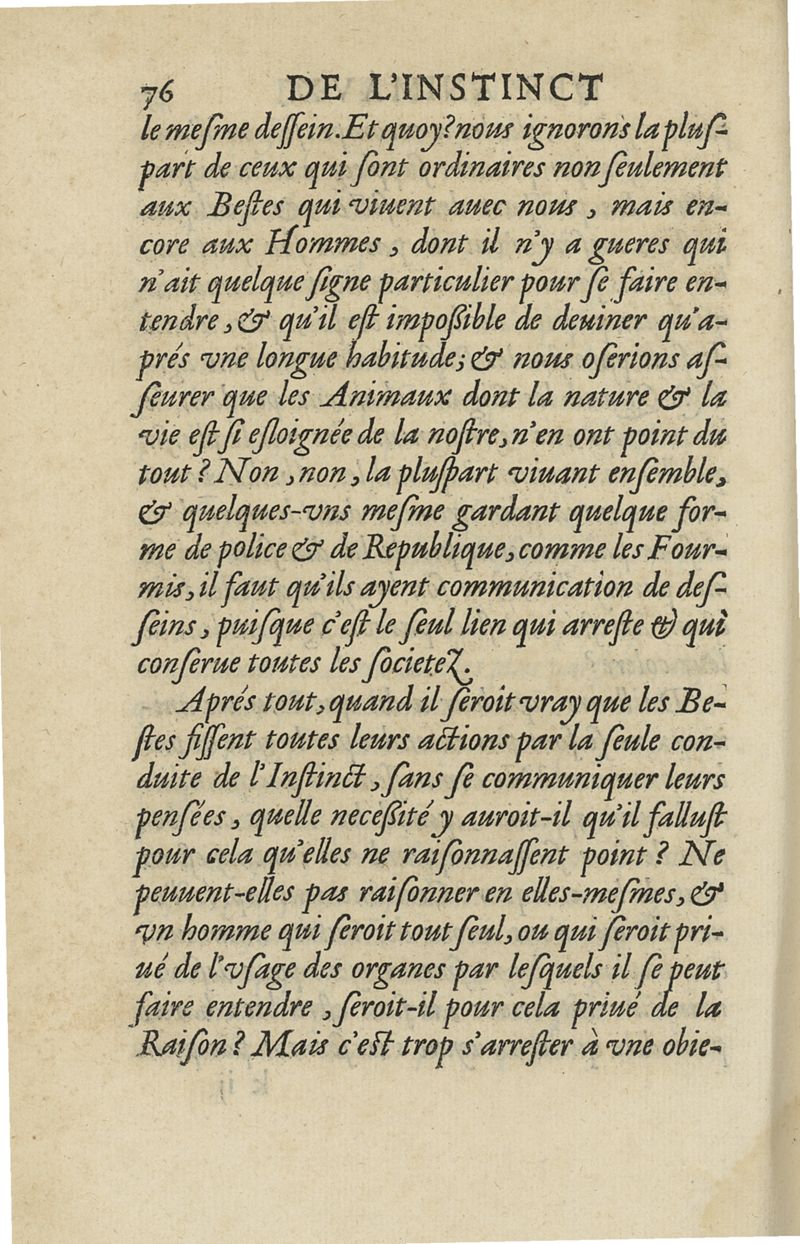 76 DE L'INSTINCT
le meſme deſſein. Et quoy? nous ignorons la pluſ-
part de ceux qui ſont ordinaires non ſeulement
aux Beſtes qui viuent auec nous, mais en-
core aux Hommes, dont il n'y a gueres qui
n'ait quelque ſigne particulier pour ſe faire en-
tendre, & qu'il eſt impoßible de deuiner qu'a-
prés vne longue habitude; & nous oſerions aſ-
ſeurer que les Animaux dont la nature & la
vie eſt ſi eſloignée de la noſtre, n'en ont point du
tout? Non, non, la pluſpart viuant enſemble,
& quelques-vns meſme gardant quelque for-
me de police & de Republique, comme les Four-
mis, il faut qu'ils ayent communication de deſ-
ſeins, puiſque c'eſt le ſeul lien qui arreſte & qui
conſerue toutes les ſocietez.
Aprés tout, quand il ſeroit vray que les Be-
ſtes fiſſent toutes leurs actions par la ſeule con-
duite de l'Inſtinct, ſans ſe communiquer leurs
penſées, quelle neceßité y auroit-il qu'il falluſt
pour cela qu'elles ne raiſonnaſſent point? Ne
peuuent-elles pas raiſonner en elles-meſmes, &
vn homme qui ſeroit tout ſeul, ou qui ſeroit pri-
ué de l'vſage des organes par leſquels il ſe peut
faire entendre, ſeroit-il pour cela priué de la
Raiſon? Mais c'eſt trop s'arreſter à vne obie-